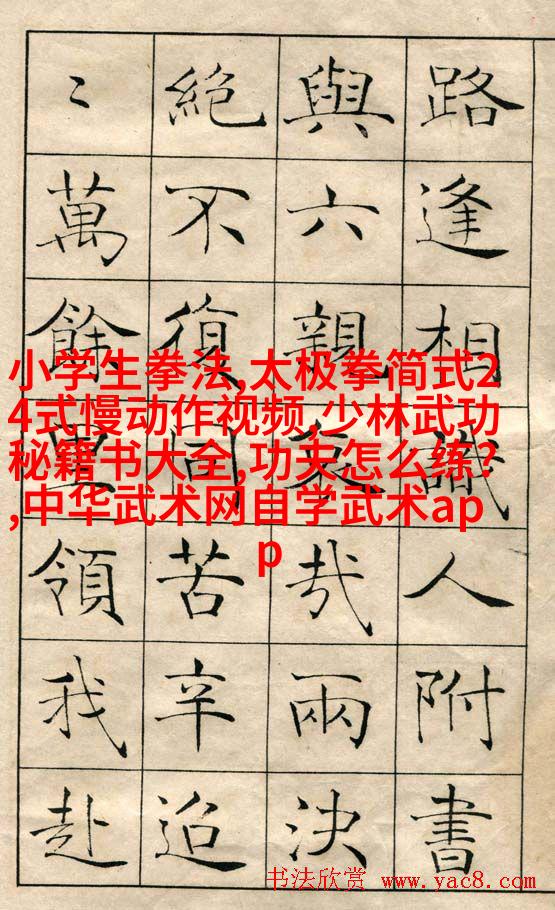 路逢相識人附書
與六親哀哉兩決
絕不復同苦辛迢
〻萬餘里領我赴
小学生拳法,太极拳简式2
4式慢动作视频,少林武功
秘籍书大全,功夫怎么练?
,中华武术网自学武术ap
p
书法欣赏 www.yac8.com